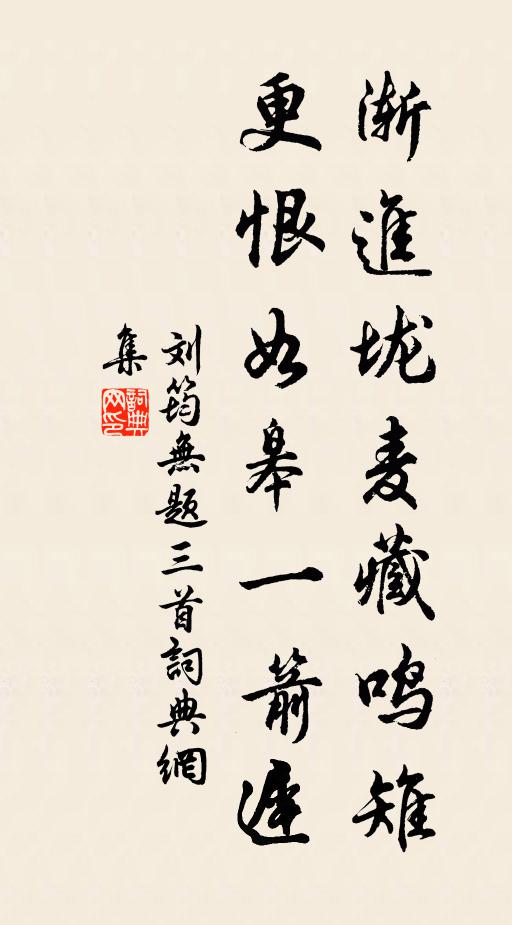 漸進垅麦藏鸣雉
更恨如皋一箭遲
刘筠無题三首詞典網
集
詞典
网印